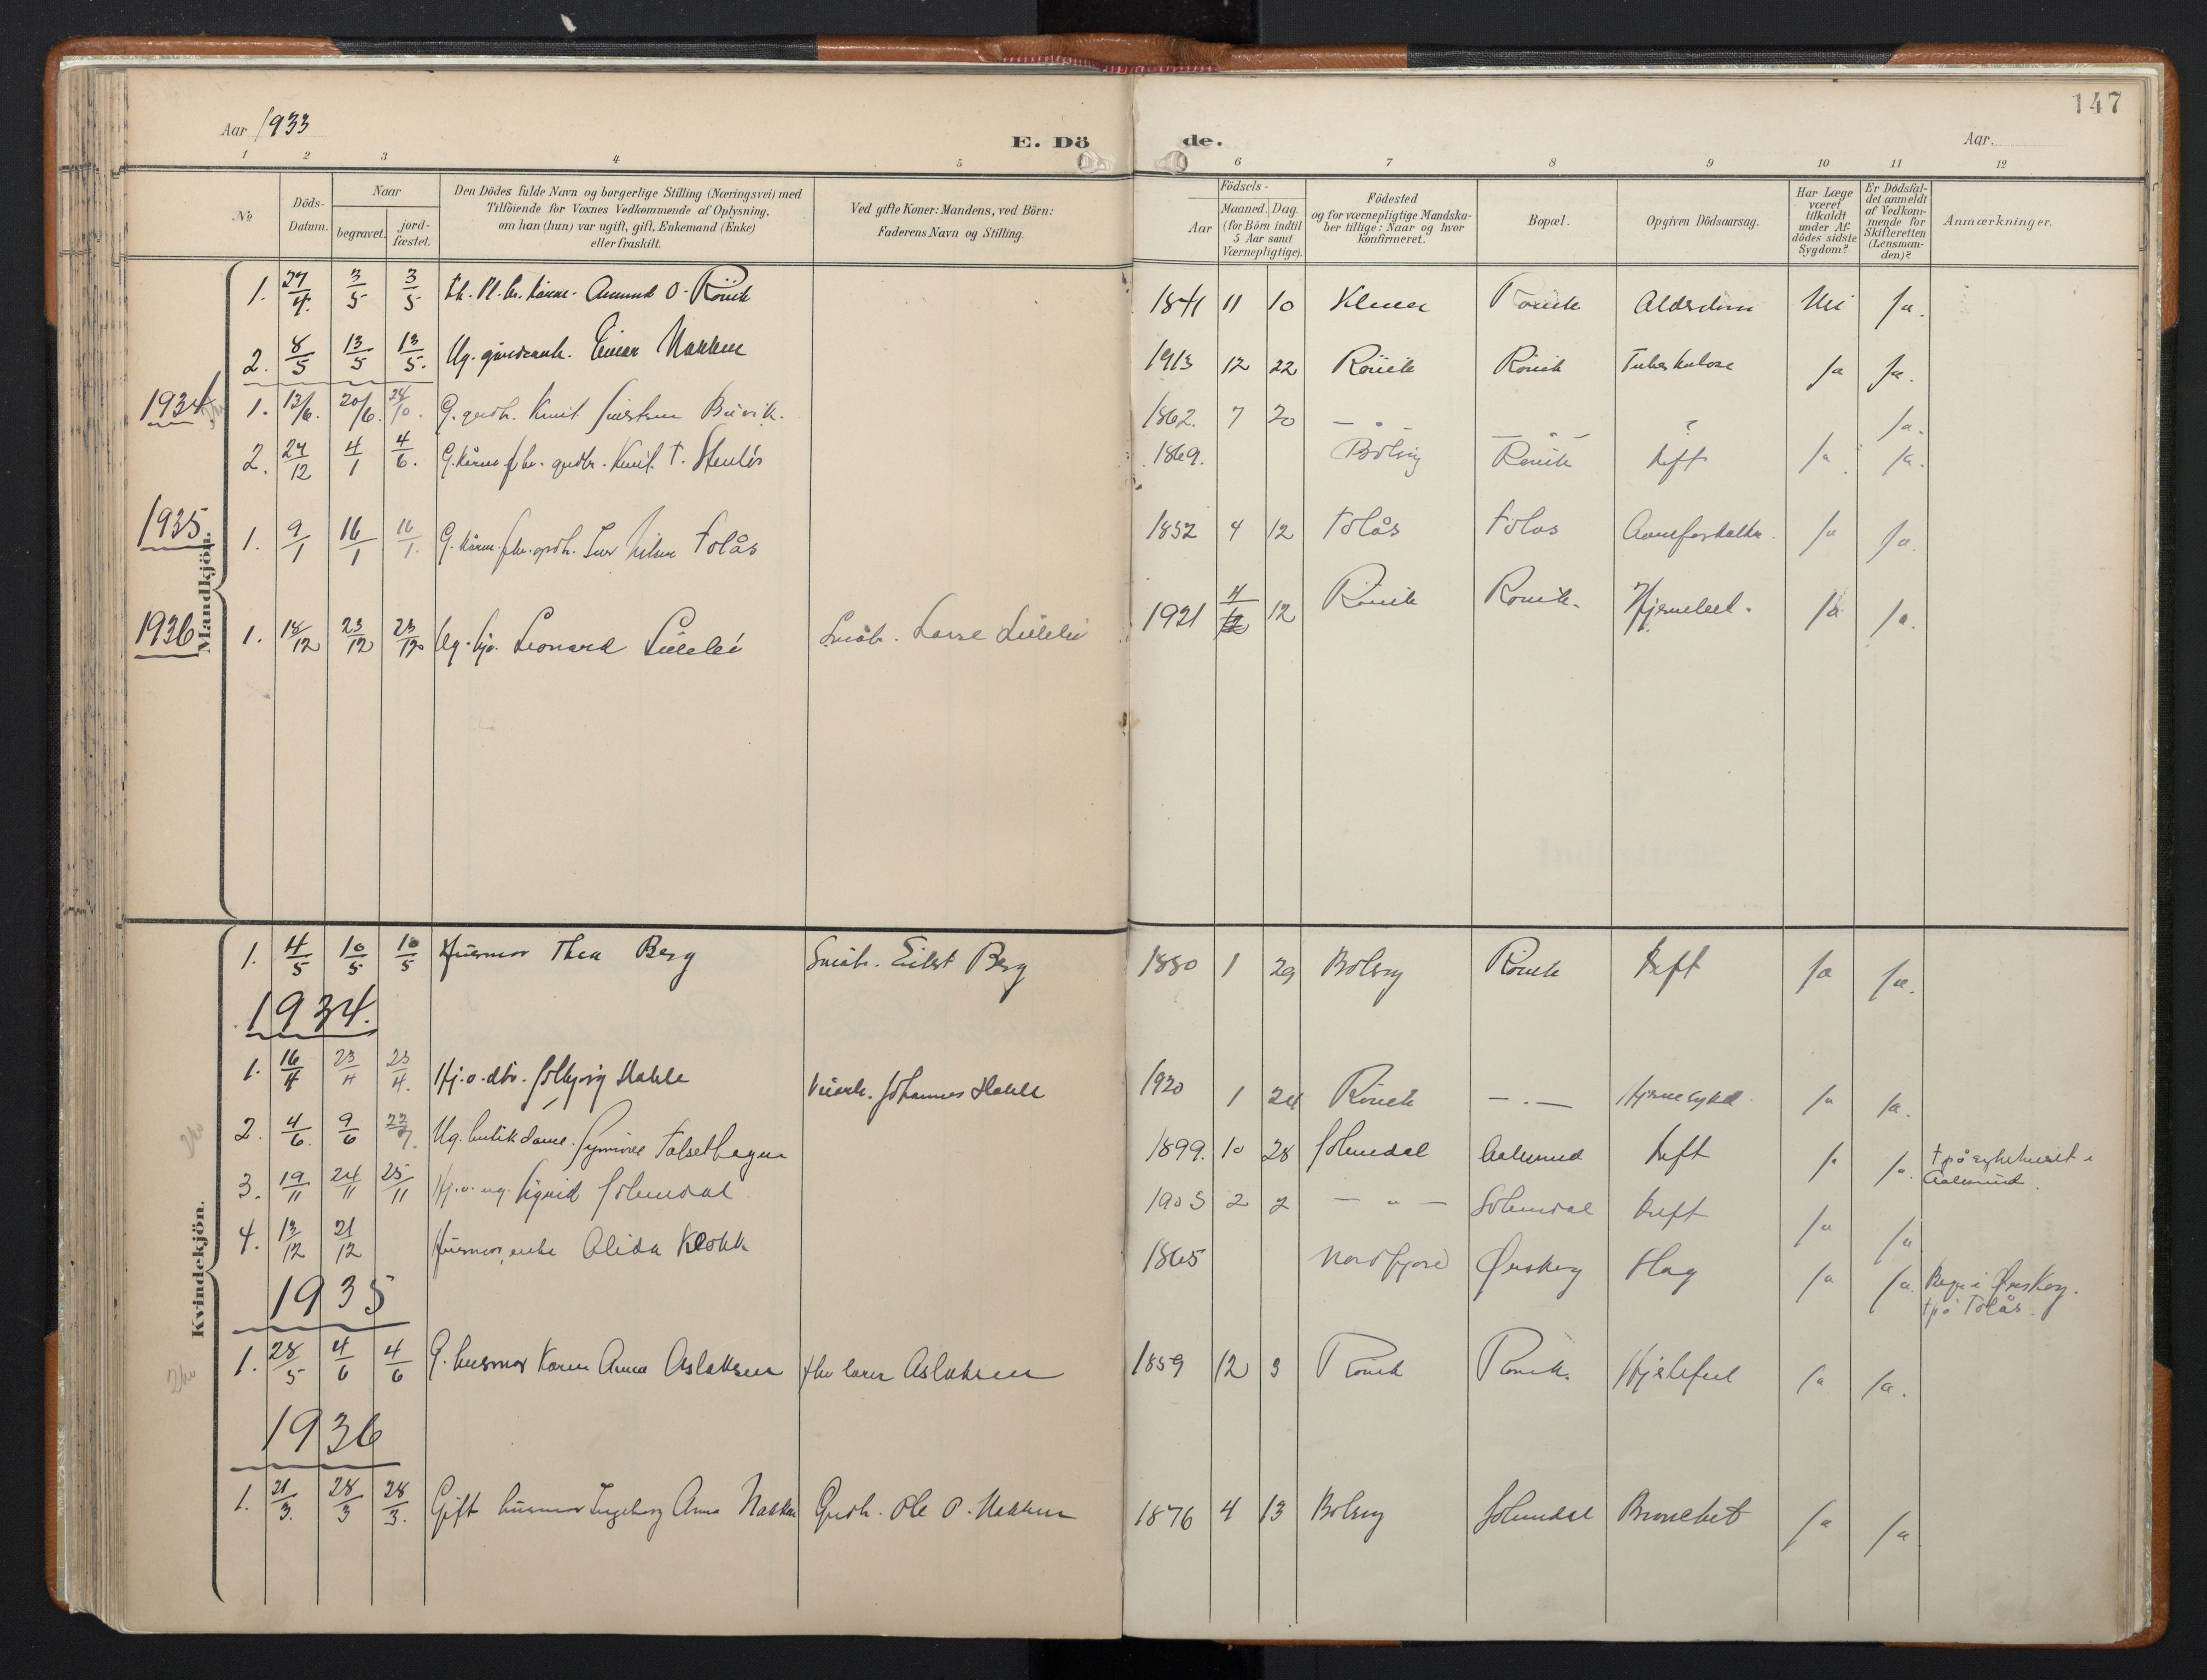 147
Aar 1933
E. Dö de.
Aar.
1 2 3 4 5 6 7 8 9 10 11 12
№
Döds-Datum.
Naar
begravet.
jord-fæstet.
Den Dödes fulde Navn og borgerlige Stilling (Næringsvei) med
Tilföiende for Voxnes Vedkommende af Oplysning,
om han (hun) var ugift, gift, Enkemand (Enke)
eller fraskilt.
Ved gifte Koner: Mandens, ved Börn:
Faderens Navn og Stilling.
Födsels-
Aar
Maaned. Dag.
(for Börn indtil
5 Aar samt
Værnepligtige).
Födested
og for værnepligtige Mandska-
ber tillige: Naar og hvor
konfirmeret.
Bopæl.
Opgiven Dödsaarsag.
Har Læge
været
tilkaldt
under Af-
dödes sidste
Sygdom?
Er Dödsfal-
det anmeldt
af Vedkom-
mende for
Skifteretten
(Lensman-
den)?
Anmærkninger.
Mandkjön.
1. 27/4. 3/5 3/5 Amund O. Rövik 1841 11 10 Rövik Alderdom Nei Ja.
2. 8/5 13/5 13/5. Ug. Einar Nakken 1913 12 22 Rövik Rövik Tuberkulose Ja Ja.
1934
1. 13/6. 20/6. 24/10. G. grdbr. Knut 1862. 7 20 — " — — " — ? Ja.
2. 27/12 4/1 4/6. G. kårm. fhv. grdbr. Knut T. 1869. Bolsøy Røvik Kreft Ja Ja.
1935
1. 9/1 16/1 16/1. G. kårm. fhv. grdb. Iver Nilsen Tolås 1852 4 12 Tolås Tolås Aareforkalkn. Ja Ja.
1936
1. 18/12 23/12 23/12 Ug. Leonard Lillelei Småbr. Lasse Lillelei 1921 11 12 Rövik Rövik. Hjernebet. Ja Ja.
Kvindekjön.
1. 4/5 10/5 10/5 Husmor Thea Berg Småbr. Eilert Berg 1880 1 29 Bolsøy Rövik Kreft Ja Ja.
1934.
1. 16/4 23/4 23/4. Hj. v. dtr. Solbjörg Hakle Johannes Hakle 1920 1 24 Rövik — . — Hjernesykd. Ja Ja.
2. 4/6. 9/6 22/7. Ug. butikdame. Synnöve Talsethagen 1899. 10 28 Solemdal Aalesund Kreft Ja Ja. † på sykehuset i
Aalesund.
3. 19/11 24/11 25/11 Hj. v. ug. Sigrid Solemdal 1903 2 2 — " — Solemdal Kreft Ja Ja
4. 13/12 21/12 Husmor, enke Alida Klokk 1865 Nordfjord Ørskog Slag Ja Ja. Begr. i Ørskog.
† på Tolås.
1935
1. 28/5 4/6 4/6 G. husmor Karen Anna Aslaksen fhv. lærer Aslaksen 1859 12 3 Rövik Rövik. Hjertefeil Ja Ja.
1936
1. 21/3. 28/3 28/3. Gift husmor Ingeborg Anna Nakken Grdbr. Ole O. Nakken 1876 4 13 Bolsøy Solemdal Bronchit Ja Ja